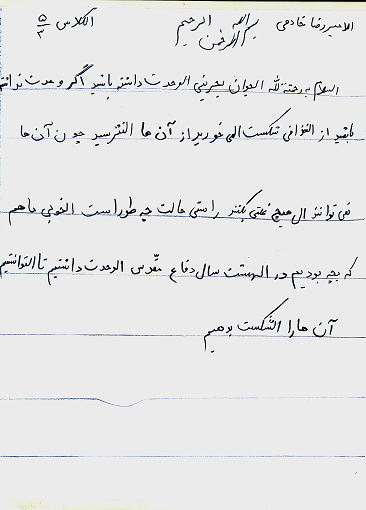 الامیررضا خادمی بسم الله الرحمن الرحیم الکلاس ۵/۳
السلام و رحمة لله العیوان بحرینی الوحدت داشته باشید اگر وحدت نداشته
باشید از القذافی شکست المی خورید از آن ها النترسید چون آن ها
نمی توانند ال هیچ غلتی بکنند راستی حالت چه طور است الخوبی ما هم
که بچه بودیم در الهشت سال دفاع مقدس الوحدت داشتیم تا التوانستیم
آن ها را الشکست بدهیم